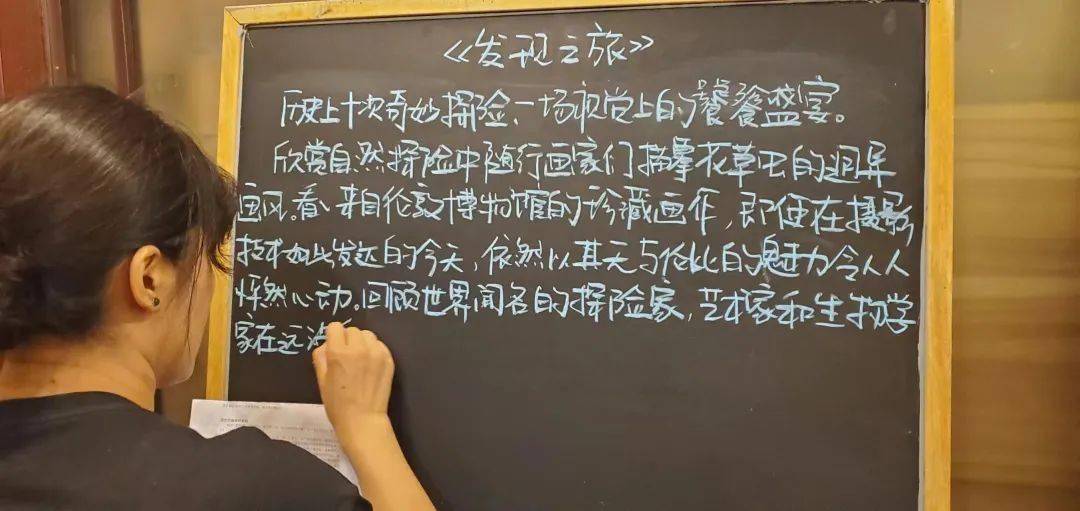 《发现之旅》
历史上十次奇妙探险、一场视觉上的饕餮盛宴。
欣赏自然探险中随行画家们描摹花草虫的迥异
画风。看、来自伦敦博物馆的珍藏画作，即便在摄影
技术如此发达的今天，依然以其无与伦比的魅力令人人
怦然心动。回顾世界闻名的探险家，艺术家和生物学
家在远